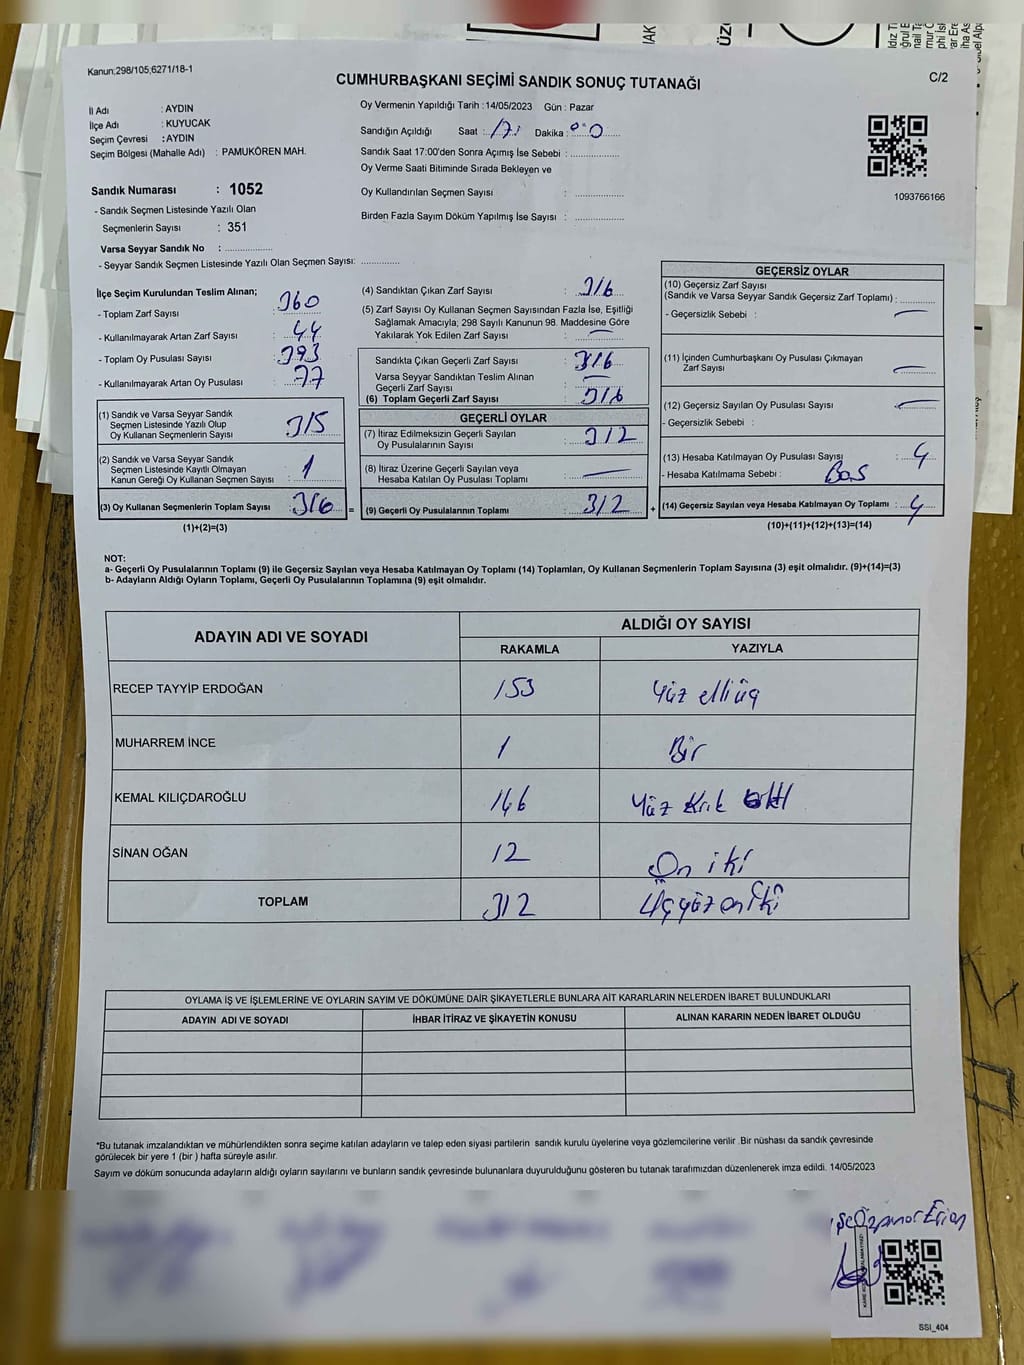 Kanun;298/105;6271/18-1
CUMHURBAŞKANI SEÇİMİ SANDIK SONUÇ TUTANAĞI
C/2
İl Adı : AYDIN
İlçe Adı : KUYUCAK
Seçim Çevresi : AYDIN
Seçim Bölgesi (Mahalle Adı) : PAMUKÖREN MAH.
Sandık Numarası : 1052
- Sandık Seçmen Listesinde Yazılı Olan
Seçmenlerin Sayısı : 351
Varsa Seyyar Sandık No :
- Seyyar Sandık Seçmen Listesinde Yazılı Olan Seçmen Sayısı:
Oy Vermenin Yapıldığı Tarih :14/05/2023 Gün : Pazar
Sandığın Açıldığı Saat : 17: Dakika : 00
Sandık Saat 17:00'den Sonra Açımış İse Sebebi :
Oy Verme Saati Bitiminde Sırada Bekleyen ve
Oy Kullandırılan Seçmen Sayısı :
Birden Fazla Sayım Döküm Yapılmış İse Sayısı :
1093766166
İlçe Seçim Kurulundan Teslim Alınan;
- Toplam Zarf Sayısı : 360
- Kullanılmayarak Artan Zarf Sayısı : 44
- Toplam Oy Pusulası Sayısı : 393
- Kullanılmayarak Artan Oy Pusulası : 77
(1) Sandık ve Varsa Seyyar Sandık
Seçmen Listesinde Yazılı Olup
Oy Kullanan Seçmenlerin Sayısı : 315
(2) Sandık ve Varsa Seyyar Sandık
Seçmen Listesinde Kayıtlı Olmayan
Kanun Gereği Oy Kullanan Seçmen Sayısı : 1
(3) Oy Kullanan Seçmenlerin Toplam Sayısı : 316 =
(1)+(2)=(3)
(4) Sandıktan Çıkan Zarf Sayısı : 316
(5) Zarf Sayısı Oy Kullanan Seçmen Sayısından Fazla İse, Eşitliği
Sağlamak Amacıyla; 298 Sayılı Kanunun 98. Maddesine Göre
Yakılarak Yok Edilen Zarf Sayısı : —
Sandıkta Çıkan Geçerli Zarf Sayısı : 316
Varsa Seyyar Sandıktan Teslim Alınan
Geçerli Zarf Sayısı : —
(6) Toplam Geçerli Zarf Sayısı : 316
GEÇERLİ OYLAR
(7) İtiraz Edilmeksizin Geçerli Sayılan
Oy Pusulalarının Sayısı : 312
(8) İtiraz Üzerine Geçerli Sayılan veya
Hesaba Katılan Oy Pusulası Toplamı : —
(9) Geçerli Oy Pusulalarının Toplamı : 312 +
GEÇERSİZ OYLAR
(10) Geçersiz Zarf Sayısı
(Sandık ve Varsa Seyyar Sandık Geçersiz Zarf Toplamı) :
- Geçersizlik Sebebi : —
(11) İçinden Cumhurbaşkanı Oy Pusulası Çıkmayan
Zarf Sayısı : —
(12) Geçersiz Sayılan Oy Pusulası Sayısı : —
- Geçersizlik Sebebi :
(13) Hesaba Katılmayan Oy Pusulası Sayısı : 4
- Hesaba Katılmama Sebebi : Boş
(14) Geçersiz Sayılan veya Hesaba Katılmayan Oy Toplamı : 4
(10)+(11)+(12)+(13)=(14)
NOT:
a- Geçerli Oy Pusulalarının Toplamı (9) ile Geçersiz Sayılan veya Hesaba Katılmayan Oy Toplamı (14) Toplamları, Oy Kullanan Seçmenlerin Toplam Sayısına (3) eşit olmalıdır. (9)+(14)=(3)
b- Adayların Aldığı Oyların Toplamı, Geçerli Oy Pusulalarının Toplamına (9) eşit olmalıdır.
ADAYIN ADI VE SOYADI
ALDIĞI OY SAYISI
RAKAMLA YAZIYLA
RECEP TAYYİP ERDOĞAN 153 Yüz elli üç
MUHARREM İNCE 1 Bir
KEMAL KILIÇDAROĞLU 146 Yüz Kırk altı
SİNAN OĞAN 12 On iki
TOPLAM 312 Üçyüz oniki
OYLAMA İŞ VE İŞLEMLERİNE VE OYLARIN SAYIM VE DÖKÜMÜNE DAİR ŞİKAYETLERLE BUNLARA AİT KARARLARIN NELERDEN İBARET BULUNDUKLARI
ADAYIN ADI VE SOYADI İHBAR İTİRAZ VE ŞİKAYETİN KONUSU ALINAN KARARIN NEDEN İBARET OLDUĞU
*Bu tutanak imzalandıktan ve mühürlendikten sonra seçime katılan adayların ve talep eden siyasi partilerin sandık kurulu üyelerine veya gözlemcilerine verilir .Bir nüshası da sandık çevresinde
görülecek bir yere 1 (bir ) hafta süreyle asılır.
Sayım ve döküm sonucunda adayların aldığı oyların sayılarını ve bunların sandık çevresinde bulunanlara duyurulduğunu gösteren bu tutanak tarafımızdan düzenlenerek imza edildi. 14/05/2023
SSI_404